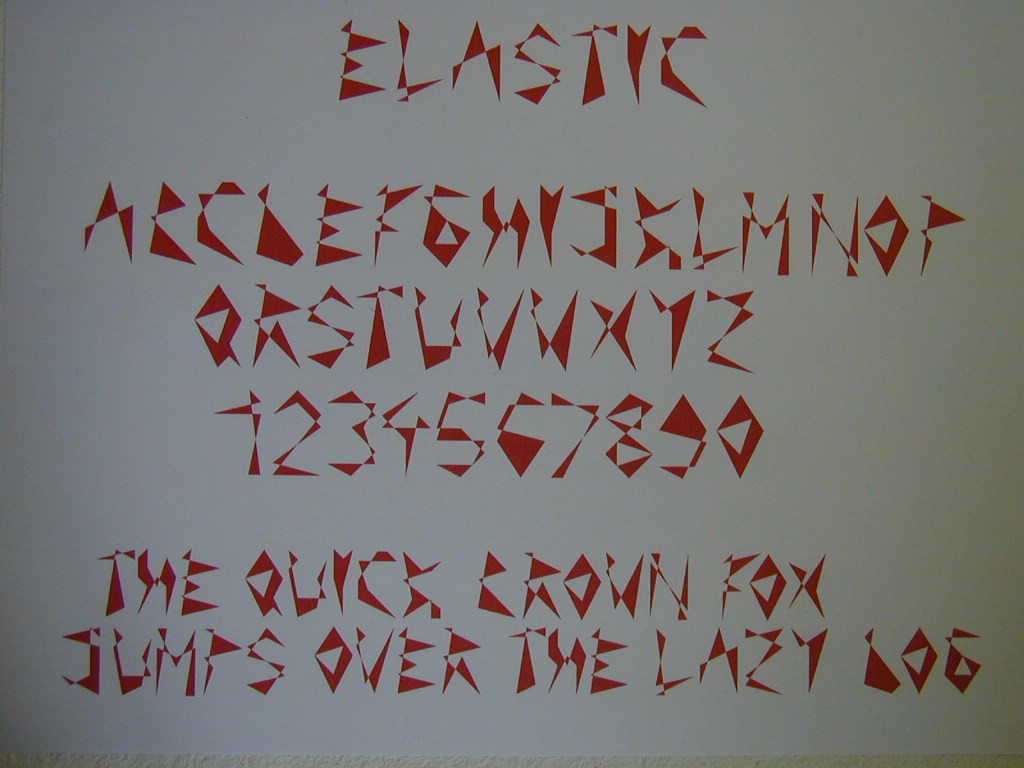 ELASTIC
ABCDEFGHIJKLMNOP
QRSTUVWXYZ
1234567890
THE QUICK BROWN FOX
JUMPS OVER THE LAZY DOG